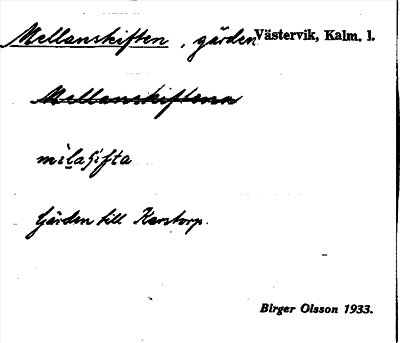 Mellanskiften, gärden Västervik, Kalm. l.
Mellanskiftena
Gärden till Karstorp.
Birger Olsson 1933.